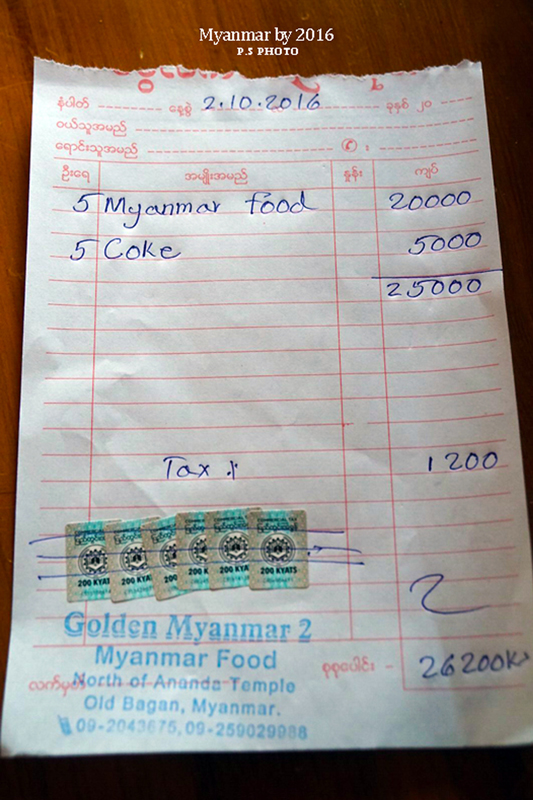 Myanmar by 2016
P.S PHOTO
နံပါတ် နေ့စွဲ 2.10.2016 ခုနှစ် ၂၀
ဝယ်သူအမည်
ရောင်းသူအမည် :
ဦးရေ အမျိုးအမည် နှုန်း ကျပ်
5 Myanmar food 20000
5 Coke 5000
25000
Tax : 1200
200 KYATS 200 KYAT 200 200 KYA 200 KYAT 200 KYATS
Golden Myanmar 2
Myanmar Food
စုစုပေါင်း - 26200Ks
လက်မှတ် North of Ananda Temple
Old Bagan, Myanmar.
09-2043675, 09-259029988